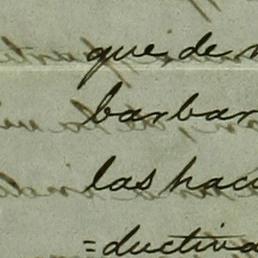 que de
barbar
las haci
=ductiva